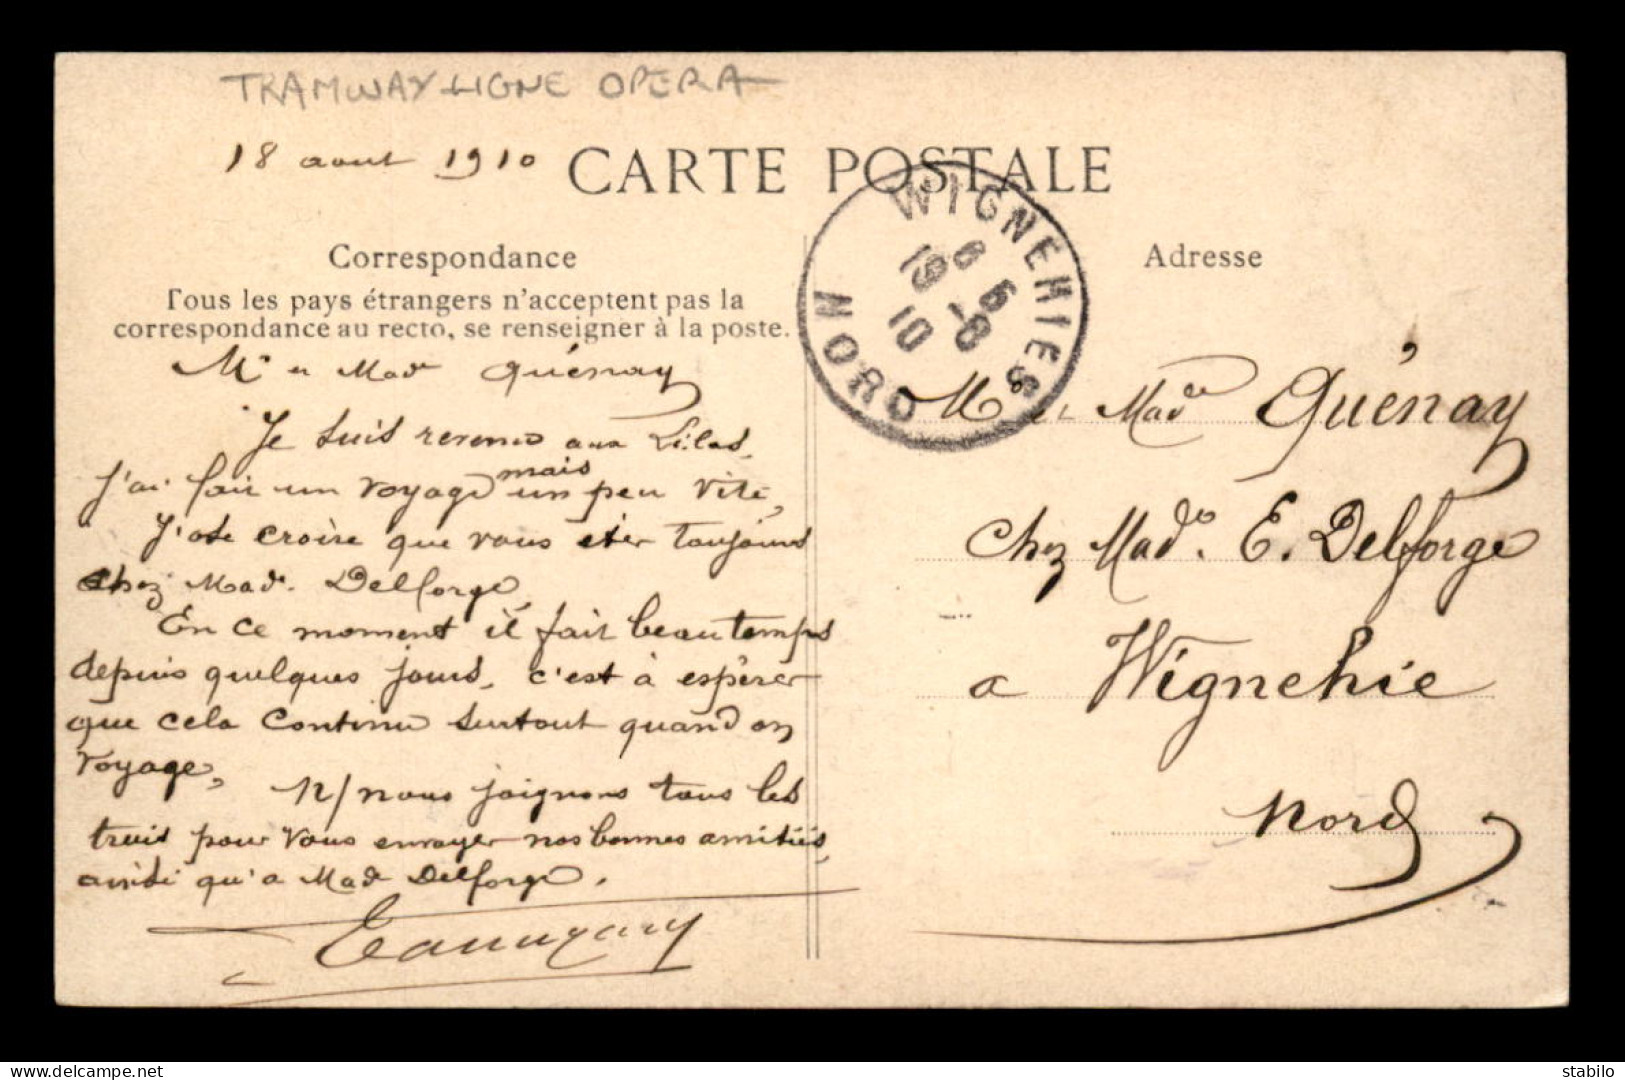 TRAMWAY LIGNE OPERA
18 aout 1910
CARTE POSTALE
WIGNEHIES
NORD
6 5
19 -8
10
Correspondance
Tous les pays étrangers n'acceptent pas la
correspondance au recto, se renseigner à la poste.
Mr et Made Quénay
Je suis revenu aux Lilas,
J'ai fait un voyage mais un peu vite,
J'ose croire que vous êter toujours
chez Made. Delforge,
En ce moment il fait beau temps
depuis quelques jours, c'est à espérer
que cela continu surtout quand on
voyage,
N/ nous joignons tous les
trois pour vous envoyer nos bonnes amitiés,
ainsi qu'a Made Delforge.
Adresse
Mr et Made Quénay
Chez Made. E. Delforge
a Wignehie
Nord
delcampe.net
stabilo